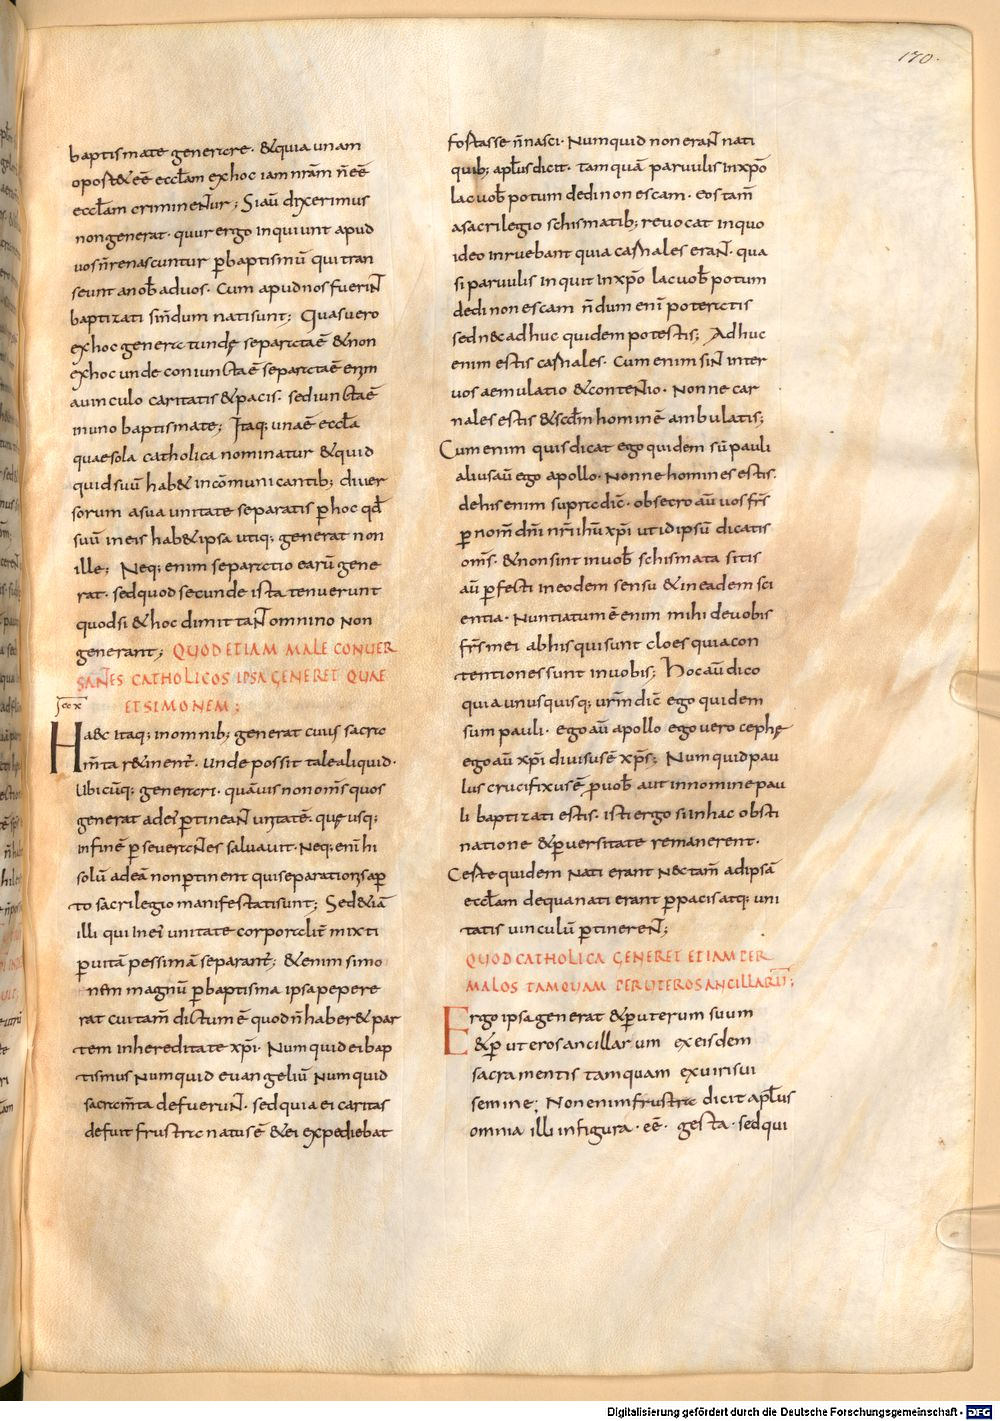 170.
baptismate generare · &quia unam
oport&eē eccl̄am exhoc iam nr̄am n̄eē
eccl̄am criminentur; Siaū dixerimus
nongenerat · quur ergo inquiunt apud
uos n̄renascuntur ꝑbaptismū qui tran
seunt anob̄ aduos. Cum apudnos fuerint
baptizati sin̄dum natisunt; Quasuero
exhoc generat undę separataē &non
exhoc unde coniunctaē separataē enim
auinculo caritatis &pacis · sediunctaē
inuno baptismate; Itaq; unaē eccl̄a
quaesola catholica nominatur &quid
quid suū hab& incōmunicantib; diuer
sorum asua unitate separatis ꝑhoc qd̄
suū ineis hab& ipsa utiq; generat non
ille; Neq; enim separatio earū gene
rat · sedquod secunde ista tenuerunt
quodsi &hoc dimittant omnino non
generant; QUOD ETIAM MALE CONUER
SANTES CATHOLICOS IPSA GENERET QUAE
ET SIMONEM;
Haec itaq; inomnib; generat cuius sacra
m̄ta r&inent̄ · unde possit tale aliquid ·
ubicūq; generari · quāuis non om̄s quos
generat adei' ꝑtineant unitatē · quę usq;
infinē ꝑseuerantes saluauit · Neq; enī hi
solū adeā nonꝑtinent quiseparationis aꝑ
to sacrilegio manifestatisunt; Sed&iā
illi qui inei' unitate corporalit̄ mixti
ꝑuitā pessimā separant̄; &enim simo
nem magnū ꝑbaptisma ipsa pepere
rat cui tam̄ dictum ē quod n̄haber& par
tem inhereditate xp̄i · Numquid ei bap
tismus numquid euangeliū numquid
sacram̄ta defuerunt · sedquia ei caritas
defuit frustra natus ē &ei expediebat
fortasse n̄nasci · Numquid non erant nati
quib; apl̄us dicit · tamquā paruulis inxp̄o
lac uob̄ potum dedi non escam · eos tam̄
asacrilegio schismatib; reuocat inquo
ideo inruebant quia carnales erant · qua
si paruulis inquit inxp̄o lac uob̄ potum
dedi non escam n̄dum enī poteratis
sed nec adhuc quidem potestis; Adhuc
enim estis carnales · Cum enim sint inter
uos aemulatio &contentio · Nonne car
nales estis &scd̄m hominē ambulatis;
Cumenim quis dicat ego quidem sū pauli
alius aū ego apollo · Nonne homines estis ·
dehis enim supra dic̄ · obsecro aū uos fr̄s
ꝑ nom̄ dn̄i nr̄i ih̄u xp̄i ut idipsū dicatis
om̄s · &nonsint inuob̄ schismata sitis
aū ꝑfecti ineodem sensu &ineadem sci
entia · Nuntiatum ē enim mihi deuobis
fr̄s mei abhis quisunt cloes quia con
tentiones sunt inuobis; Hoc aū dico
quia unusquisq; ur̄m dic̄ ego quidem
sum pauli · ego aū apollo ego uero cephę
ego aū xp̄i diuisus ē xp̄s; Numquid pau
lus crucifixus ē ꝑuob̄ aut innomine pau
li baptizati estis · isti ergo siinhac obsti
natione &ꝑuersitate remanerent ·
Certe quidem nati erant nec tam̄ adipsā
eccl̄am dequa nati erant ꝑpacis atq; uni
tatis uinculū ꝑtinerent;
QUOD CATHOLICA GENERET ETIAM PER
MALOS TAMQUAM PER UTEROS ANCILLARŪ;
Ergo ipsa generat &ꝑuterum suum
&ꝑ uteros ancillarum ex eisdem
sacramentis tamquam ex uiri sui
semine; Non enim frustra dicit apl̄us
omnia illi infigura · eē · gesta · sed qui
Digitalisierung gefördert durch die Deutsche Forschungsgemeinschaft - DFG